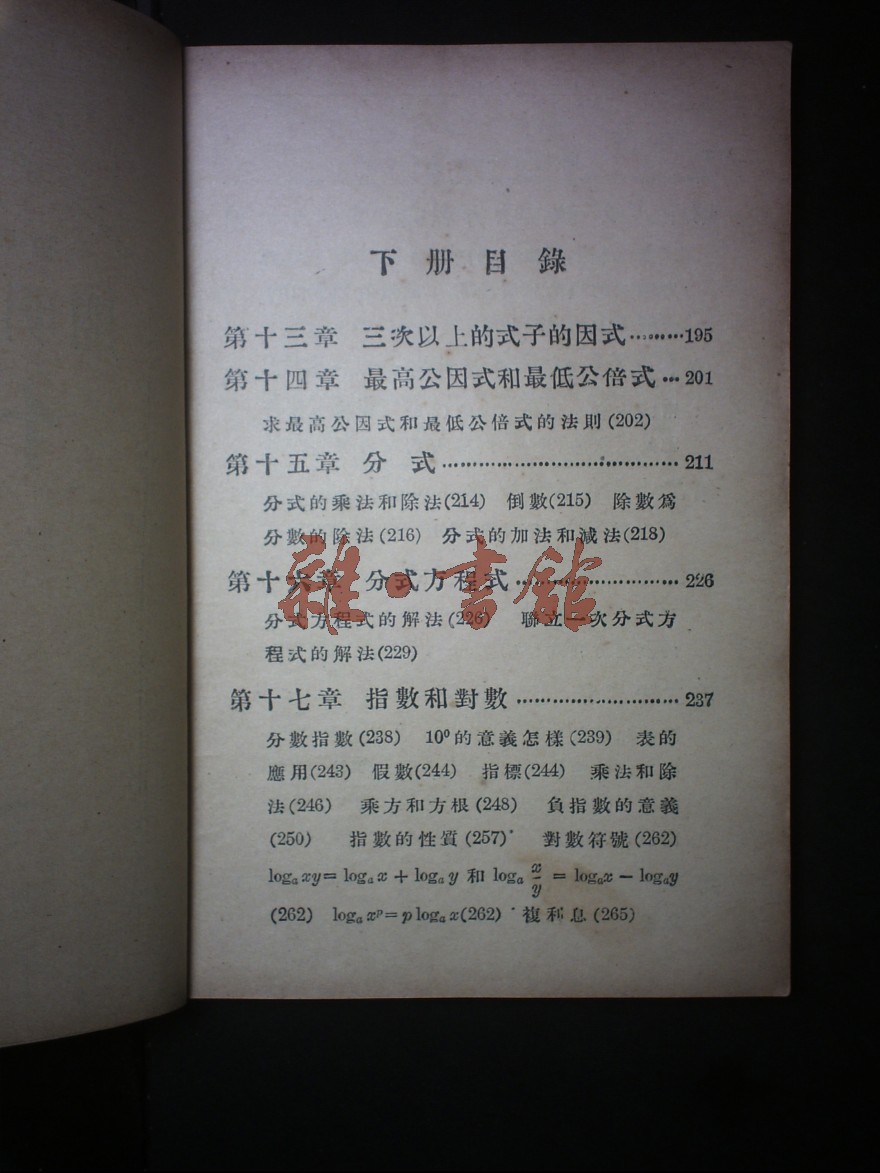 下册目錄
第十三章 三次以上的式子的因式………195
第十四章 最高公因式和最低公倍式…201
求最高公因式和最低公倍式的法則(202)
第十五章 分 式………………………………211
分式的乘法和除法(214) 倒數(215) 除數爲
分數的除法(216) 分式的加法和減法(218)
第十六章 分式方程式……………………226
分式方程式的解法(226) 聯立一次分式方
程式的解法(229)
第十七章 指數和對數……………………237
分數指數(238) 10⁰的意義怎樣(239) 表的
應用(243) 假數(244) 指標(244) 乘法和除
法(246) 乘方和方根(248) 負指數的意義
(250) 指數的性質(257) 對數符號(262)
logₐ xy = logₐ x + logₐ y 和 logₐ x/y = logₐx − logₐy
(262) logₐ xᵖ = p logₐ x(262) 複利息(265)
雜·書館